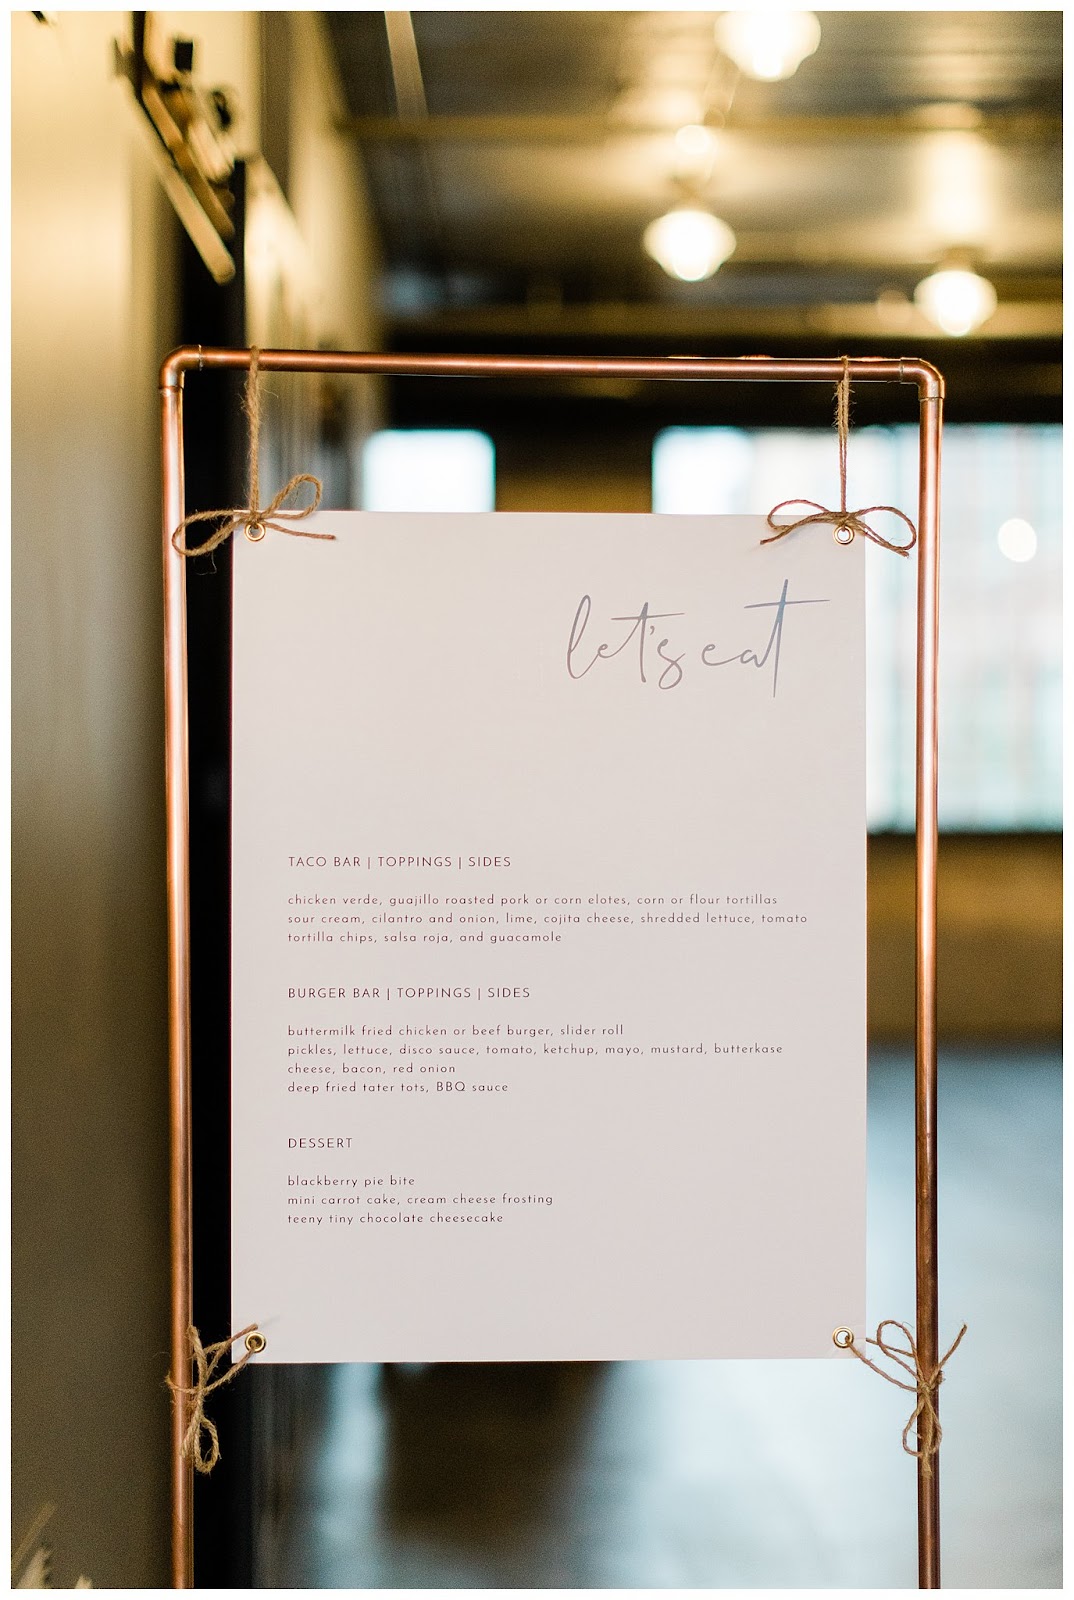 let's eat
TACO BAR | TOPPINGS | SIDES
chicken verde, guajillo roasted pork or corn elotes, corn or flour tortillas
sour cream, cilantro and onion, lime, cojita cheese, shredded lettuce, tomato
tortilla chips, salsa roja, and guacamole
BURGER BAR | TOPPINGS | SIDES
buttermilk fried chicken or beef burger, slider roll
pickles, lettuce, disco sauce, tomato, ketchup, mayo, mustard, butterkase
cheese, bacon, red onion
deep fried tater tots, BBQ sauce
DESSERT
blackberry pie bite
mini carrot cake, cream cheese frosting
teeny tiny chocolate cheesecake